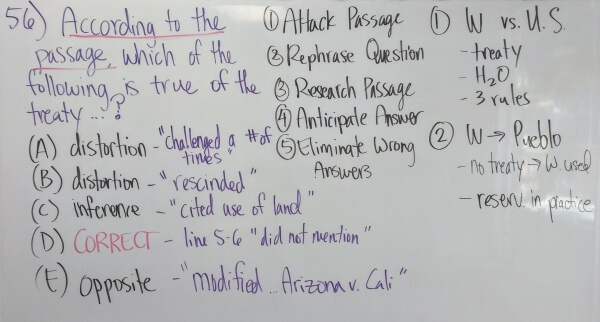 56) According to the
passage, which of the
following is true of the
treaty...?
(A) distortion - "challenged a # of
times"
(B) distortion - "rescinded"
(C) inference - "cited use of land"
(D) CORRECT - line 5-6 "did not mention"
(E) opposite - "modified... Arizona v. Cali"
① Attack Passage
② Rephrase Question
③ Research Passage
④ Anticipate Answer
⑤ Eliminate Wrong
Answers
① W vs. U.S.
- treaty
- H₂O
- 3 rules
② W → Pueblo
- no treaty → W. used
- reserv. in practice